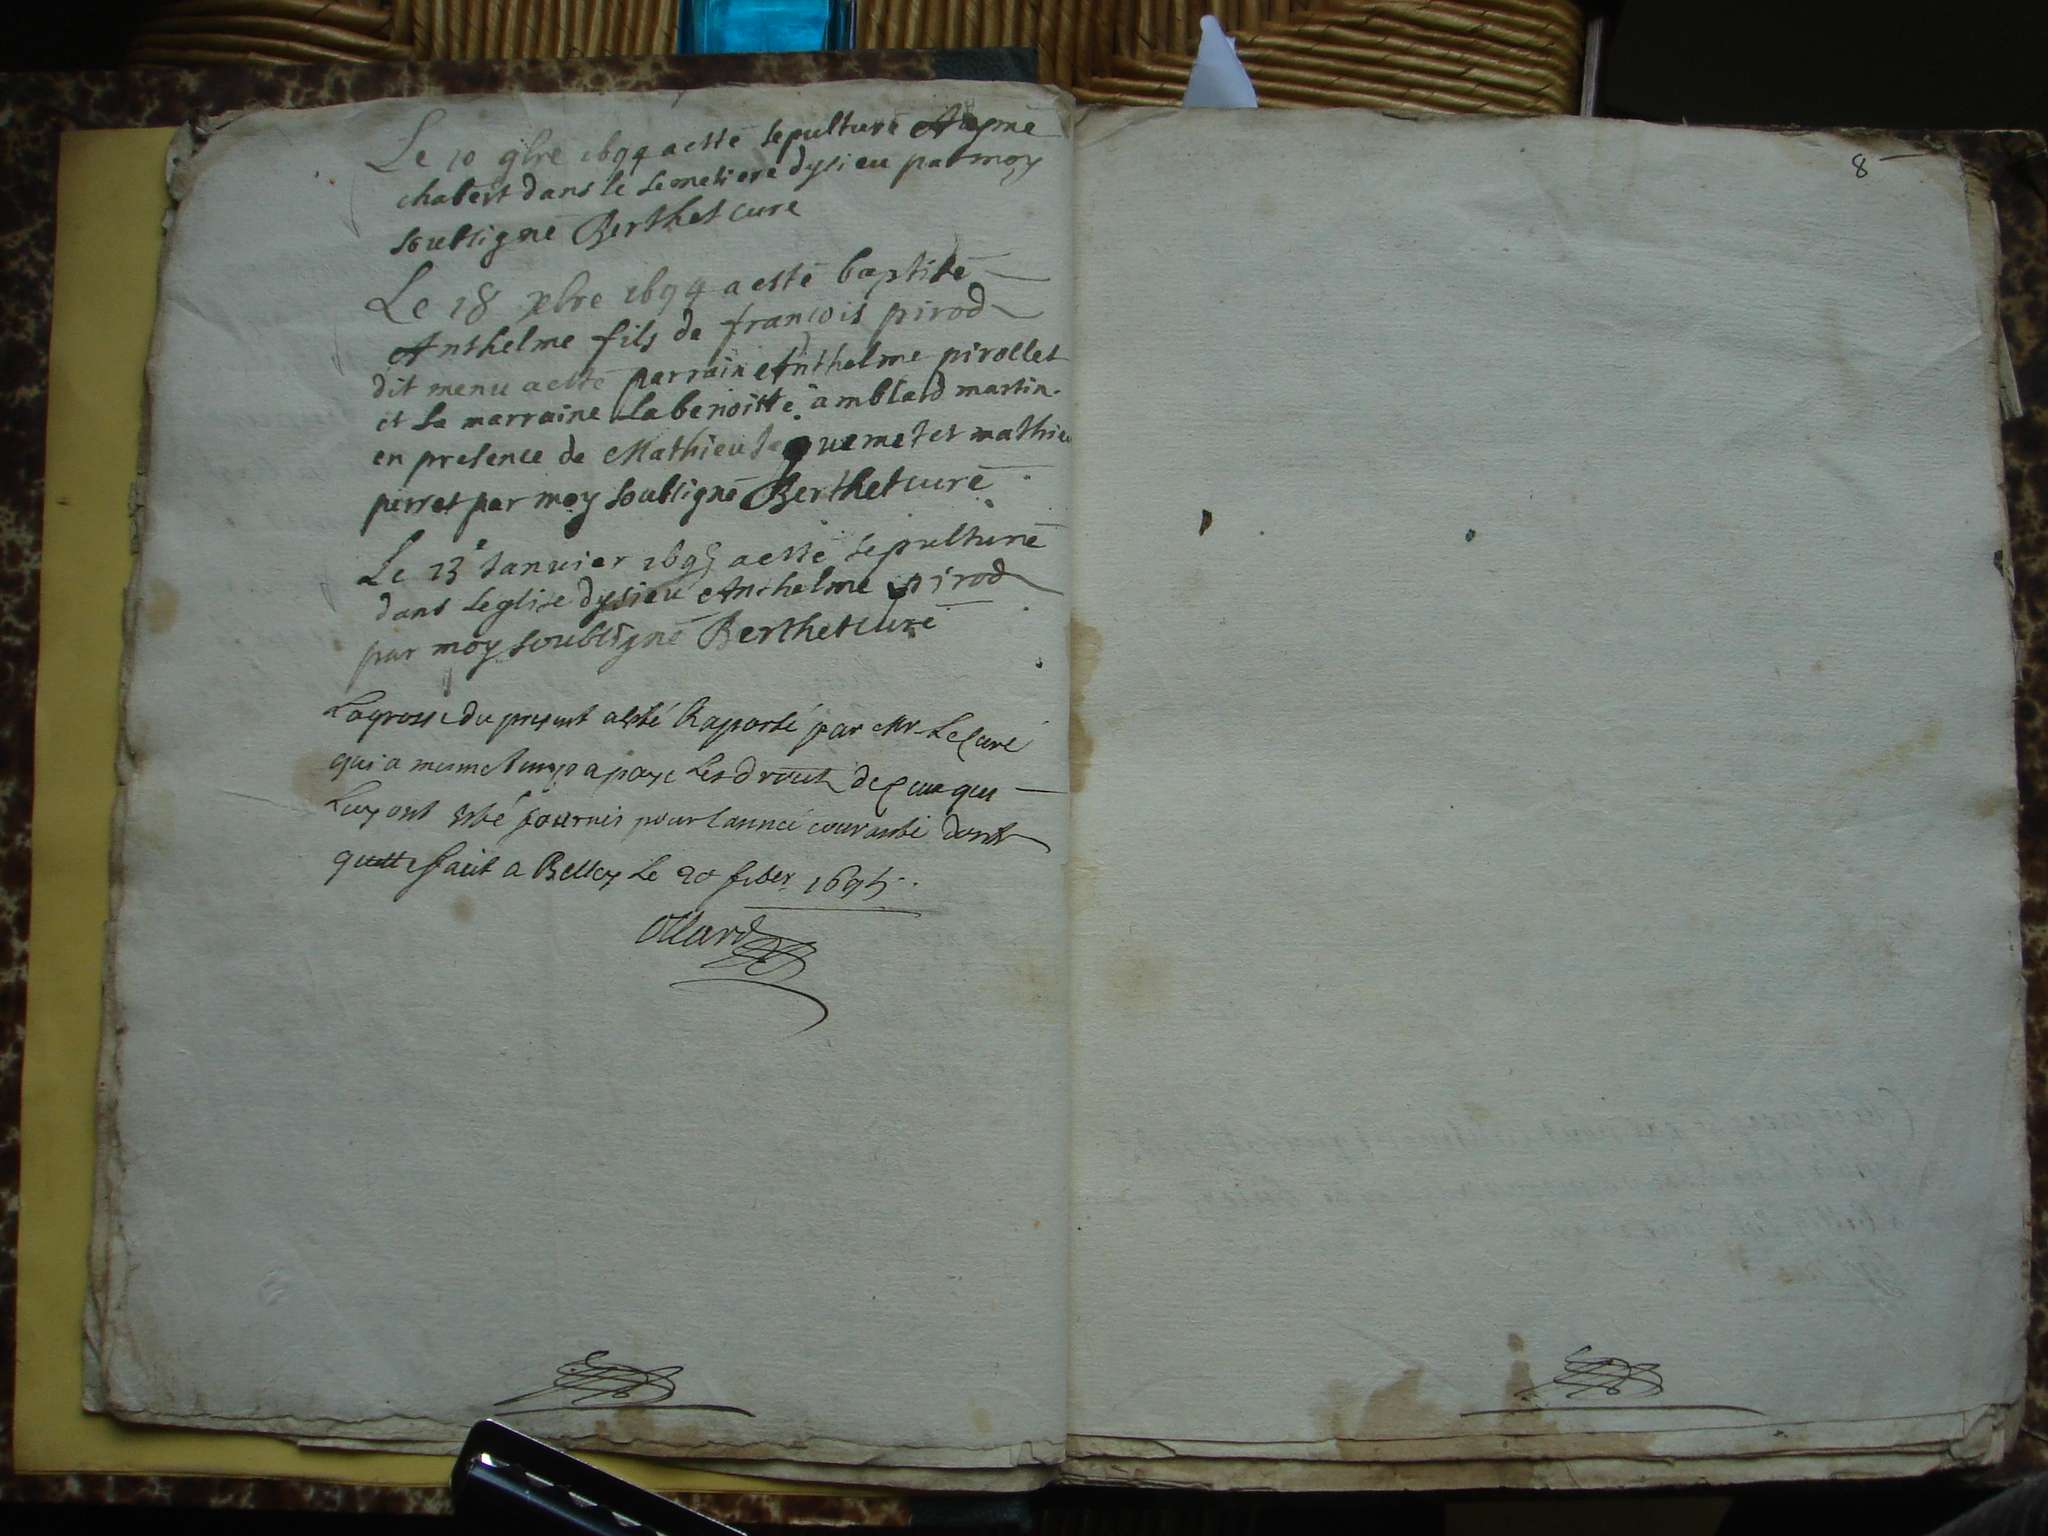 Le 10 9bre 1694 a esté sepulturé Aymé
chabert dans le semetiere dysieu par moy
soubsigné Berthet curé
Le 18 xbre 1694 a esté baptisé
Anthelme fils de françois pirod
dit menu a esté parrain Anthelme pirollet
et la marraine La benoitte amblard martin
en presence de Mathieu Jaquemet et mathieu
perret par moy soubsigné Berthet curé
Le 13e Janvier 1695 a esté sepulturé
dans leglise dysieu Anthelme pirod
par moy soubsigné Berthet curé
La grosse du present a esté Raporté par Mr Le Curé
qui a mesme temps a payé Les droits de ceux qui
Luy ont esté fournis pour lannée courante dont
quitte faict a Belley Le 20 feber 1695
Ollard
8